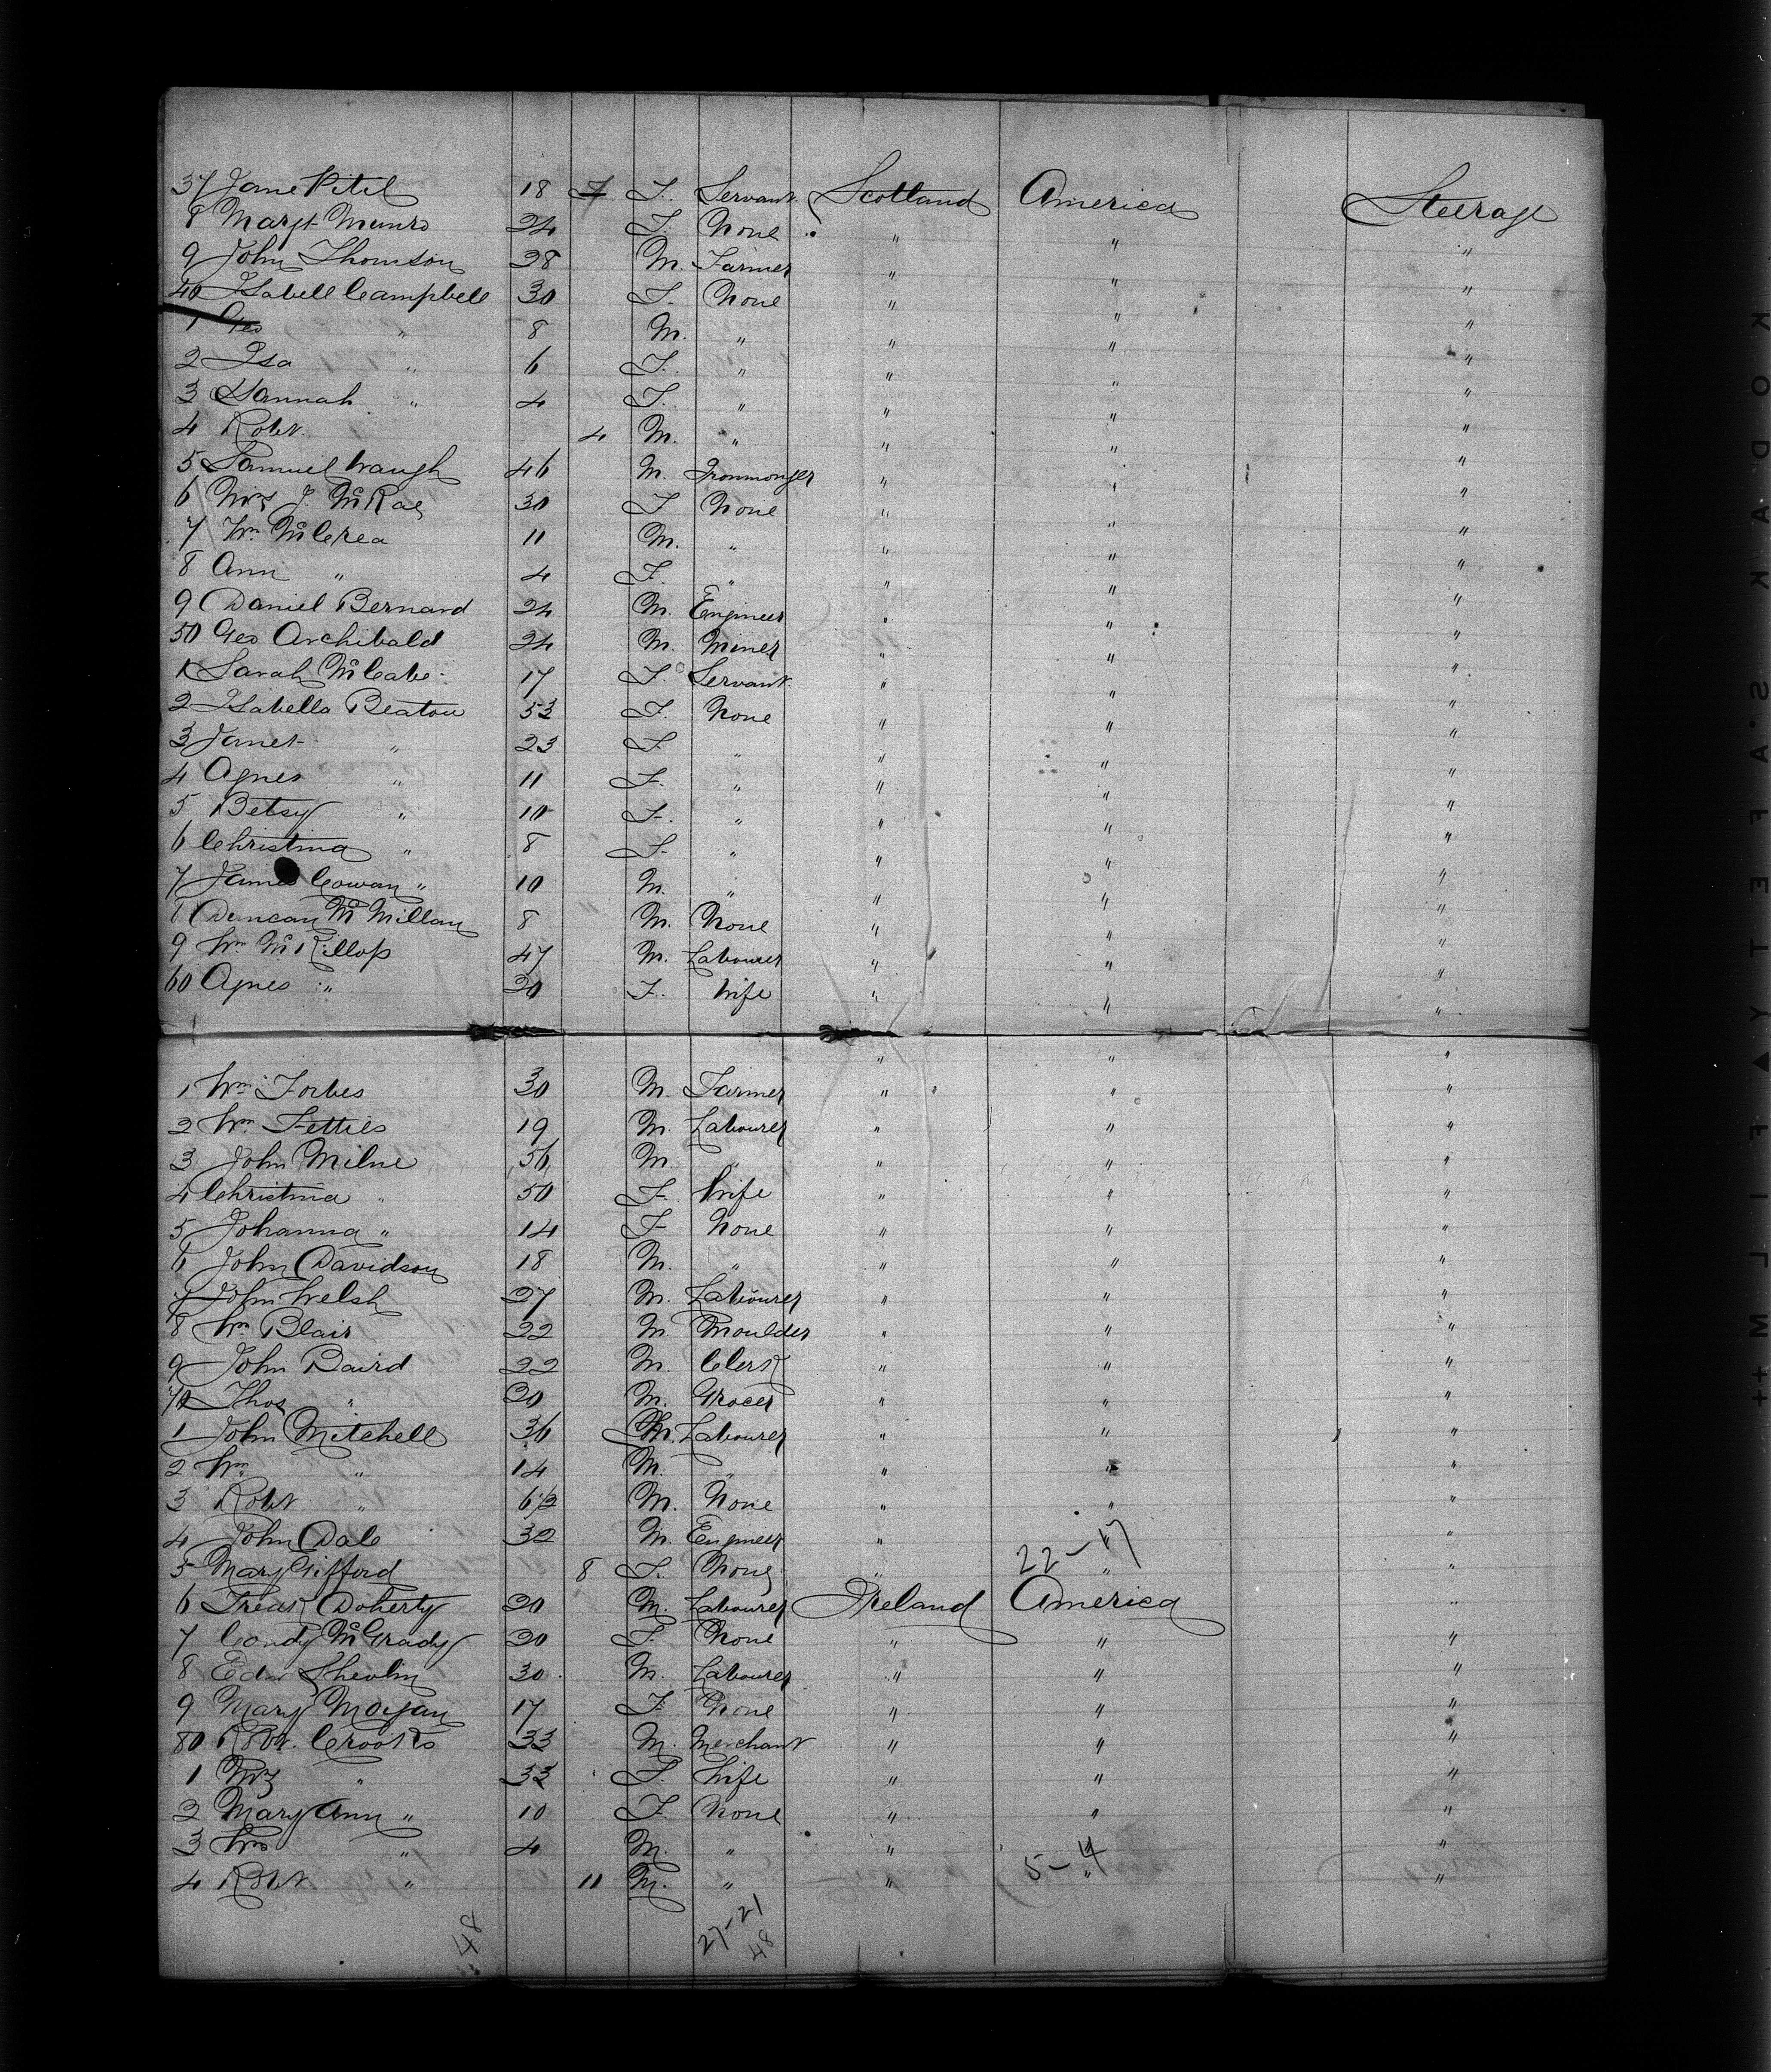 37 Jane Pitel 18 F. Servant Scotland America Steerage
8 Margt Munro 24 F. None " " "
9 John Thomson 28 M. Farmer " " "
40 Isabell Campbell 30 F. None " " "
1 Geo " 8 M. " " " "
2 Isa " 6 F. " " " "
3 Hannah " 4 F. " " " "
4 Robt. 4 M. " " " "
5 Samuel Waugh 46 M. Ironmonger " " "
6 Mrs J. McRae 30 F None " " "
7 Wm McCrea 11 M. " " " "
8 Ann " 4 F. " " " "
9 Daniel Bernard 24 M. Engineer " " "
50 Geo Archibald 24 M. Miner " " "
1 Sarah McCabe 17 F. Servant " " "
2 Isabella Beaton 53 F. None " " "
3 Janet " 23 F " " " "
4 Agnes " 11 F. " " " "
5 Betsy " 10 F. " " " "
6 Christina " 8 F. " " " "
7 James Cowan " 10 M. " " " "
8 Duncan McMillan 8 M. None " " "
9 Wm McKillop 47 M. Labourer " " "
60 Agnes " 30 F. Wife " " "
1 Wm Forbes 30 M. Farmer " " "
2 Wm Fetties 19 M. Labourer " " "
3 John Milne 56 M " " " "
4 Christina " 50 F. Wife " " "
5 Johanna " 14 F None " " "
6 John Davidson 18 M. " " " "
7 John Welsh 27 M. Labourer " " "
8 Wm Blair 22 M. Moulder " " "
9 John Baird 22 M. Clerk " " "
70 Thos " 20 M. Grocer " " "
1 John Mitchell 36 M. Labourer " " "
2 Wm " 14 M. " " " "
3 Robt " 6½ M. None " " "
4 John Dale 32 M. Engineer " 22-17 "
5 Mary Gifford 8 F. None " " "
6 Doherty 20 M. Labourer Ireland America "
7 Condy McGrady 20 F. None " " "
8 Edw Shevlin 30 M. Labourer " " "
9 Mary Mogan 17 F. None " " "
80 Robt. Crooks 33 M. Merchant " " "
1 Mrs " 33 F. Wife " " "
2 Mary Ann " 10 F. None " " "
3 Wm " 4 M. " " " "
4 Robt " 11 M. " " 5-4 " "
48 27-21
48
KODAK SAFETY FILM